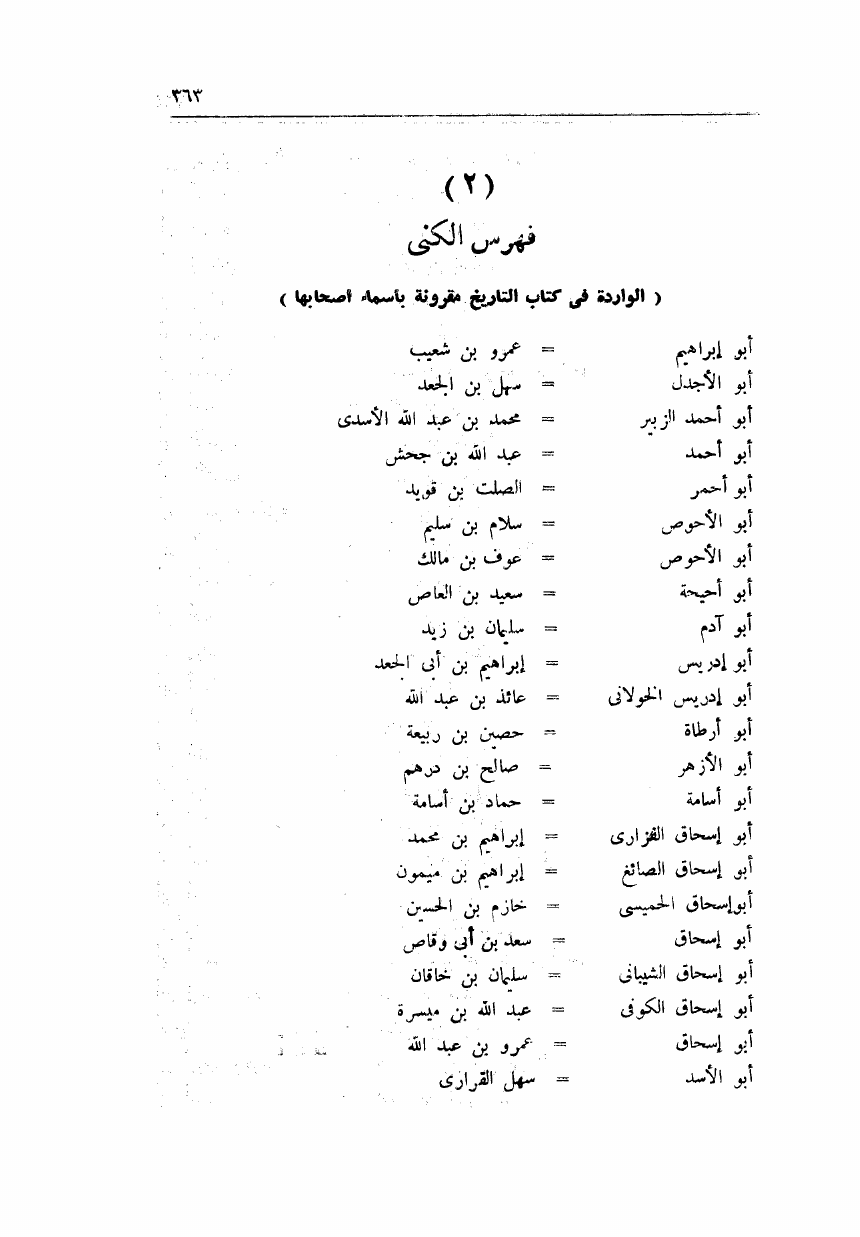 ٣٦٣
( ٢ )
فهرس الكنى
( الواردة فى كتاب التاريخ مقرونة بأسماء أصحابها )
أبو إبراهيم = عمرو بن شعيب
أبو الأجدل = سهل بن الجعد
أبو أحمد الزبير = محمد بن عبد الله الأسدى
أبو أحمد = عبد الله بن جحش
أبو أحمر = الصلت بن قويد
أبو الأحوص = سلام بن سليم
أبو الأحوص = عوف بن مالك
أبو أحيحة = سعيد بن العاص
أبو آدم = سليمان بن زيد
أبو إدريس = إبراهيم بن أبى الجعد
أبو إدريس الخولانى = عائذ بن عبد الله
أبو أرطاة = حصين بن ربيعة
أبو الأزهر = صالح بن درهم
أبو أسامة = حماد بن أسامة
أبو إسحاق الفزارى = إبراهيم بن محمد
أبو إسحاق الصائغ = إبراهيم بن ميمون
أبوإسحاق الخميسى = خازم بن الحسين
أبو إسحاق = سعد بن أبى وقاص
أبو إسحاق الشيبانى = سليمان بن خاقان
أبو إسحاق الكوفى = عبد الله بن ميسرة
أبو إسحاق = عمرو بن عبد الله
أبو الأسد = سهل القرارى